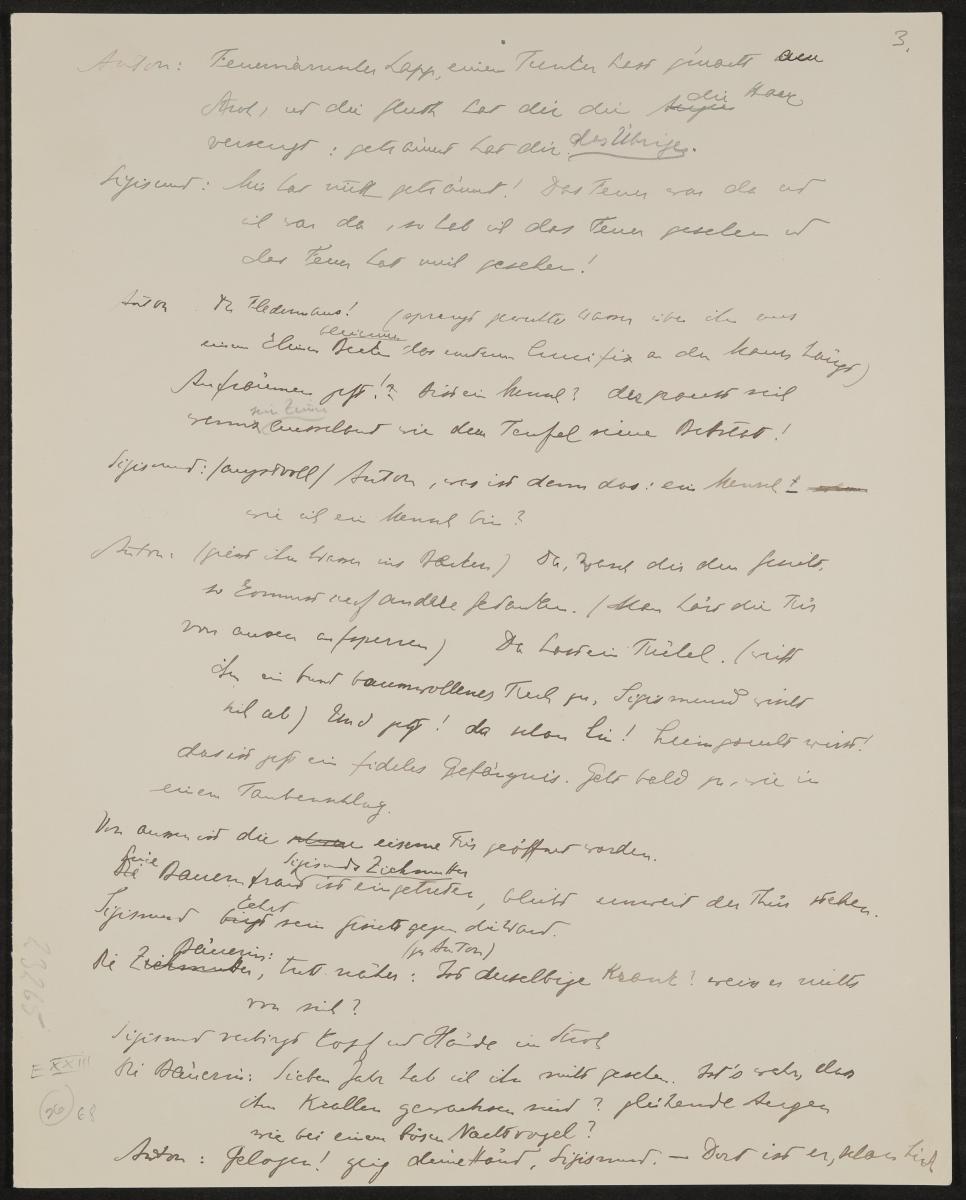 3.
Anton: Feuerwärmeter Lapp, einen Trenter hast gemacht am
Stroh, und die Gluth hat dir die die Haar
versengt: geträumt hat dir das Übrige.
Sigismund: Mir hat nicht geträumt! Das Feuer war da und
ich war da, so hab ich das Feuer gesehen und
das Feuer hat mich gesehen!
Anton Du Fledermaus! (sprengt geweihtes Wasser über ihn aus
bleiernen
einem kleinen Becken das unterm Crucifix an der Mauer hängt)
Aufräumen jetzt!? Bist ein Mensch? der graust sich
sein Zimmer
wenns ausschaut wie dem Teufel seine Bettstatt!
Sigismund: (angstvoll) Anton, was ist denn das: ein Mensch
wie ich ein Mensch bin?
Anton: (giesst ihm Wasser ins Becken) Da, wasch dir dein Gesicht,
so kommst auf andere Gedanken. (Man hört die Tür
von aussen aufsperren) Da hast ein Tüchel. (wirft
ihm ein bunt baumwollenes Tuch zu, Sigismund wischt
sich ab) Und jetzt! da schau hin! heimgesucht wirst!
das ist jetzt ein fideles Gefängnis. Geht bald zu, wie in
einem Taubenschlag.
Von aussen ist die eiserne Tür geöffnet worden.
Eine Sigismunds Ziehmutter
Bauernfrau ist eingetreten, bleibt unweit der Thür stehen.
kehrt
Sigismund sein Gesicht gegen die Wand.
Bäuerin: (zu Anton)
Die tritt näher: Ist derselbige krank? weiss er nichts
von sich?
Sigismund verbirgt Kopf und Hände im Stroh
Die Bäuerin: Sieben Jahr hab ich ihn nicht gesehen. Ist's wahr, dass
ihm Krallen gewachsen sind? glühende Augen
wie bei einem bösen Nachtvogel?
Anton: Gelogen! zeig deine Händ, Sigismund. – Dort ist er, schau Sie ihn
23265
E XXIII
26
68